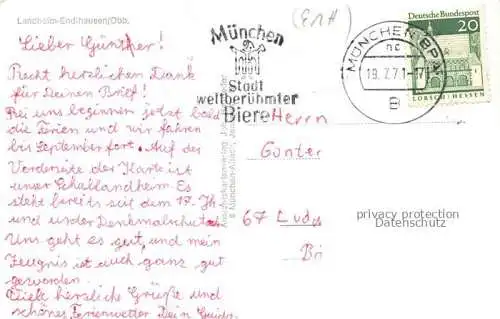 Landheim-Endlhausen/Obb.
Lieber Günther!
Recht herzlichen Dank
für Deinen Brief!
Bei uns beginnen jetzt bald
die Ferien und wir fahren
bis September fort. Auf der
Vorderseite der Karte ist
unser Schullandheim. Es
steht bereits seit dem 17. Jh
und unter Denkmalschutz.
Uns geht es gut und mein
Zeugnis ist auch ganz gut
geworden.
Viele herzliche Grüße und
schönes Ferienwetter Dein Guido
München
Stadt
weltberühmter
Biere
MÜNCHEN BPA
19.7.71-17
Deutsche Bundespost
20
LORSCH/HESSEN
Herrn
Günter
67 Ludw
privacy protection
Datenschutz